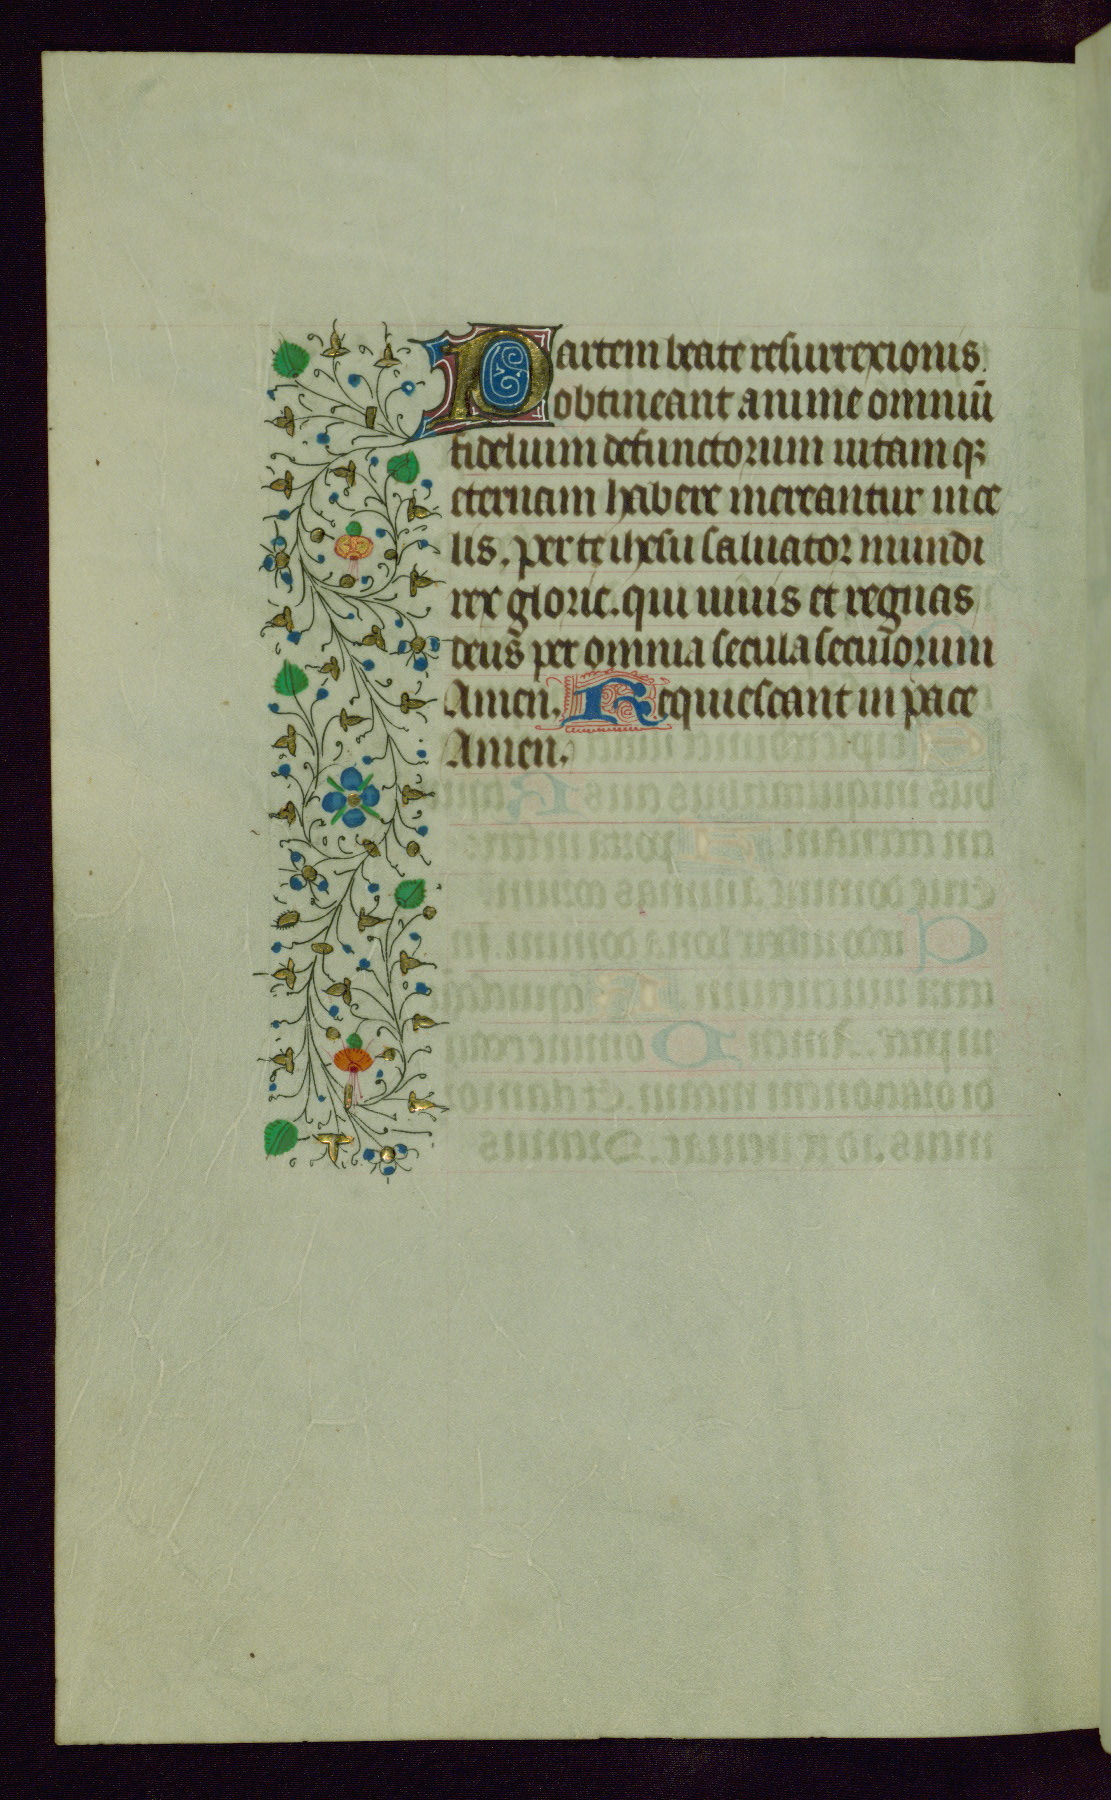 Partem beate resurrexionis.
obtineant anime omniū
fidelium defunctorum uitam qꝫ
eternam habere mereantur in ce
lis. per te ihesu saluator mundi
rex glorie. qui uiuis et regnas
deus per omnia secula seculorum
Amen. Requiescant in pace
Amen.